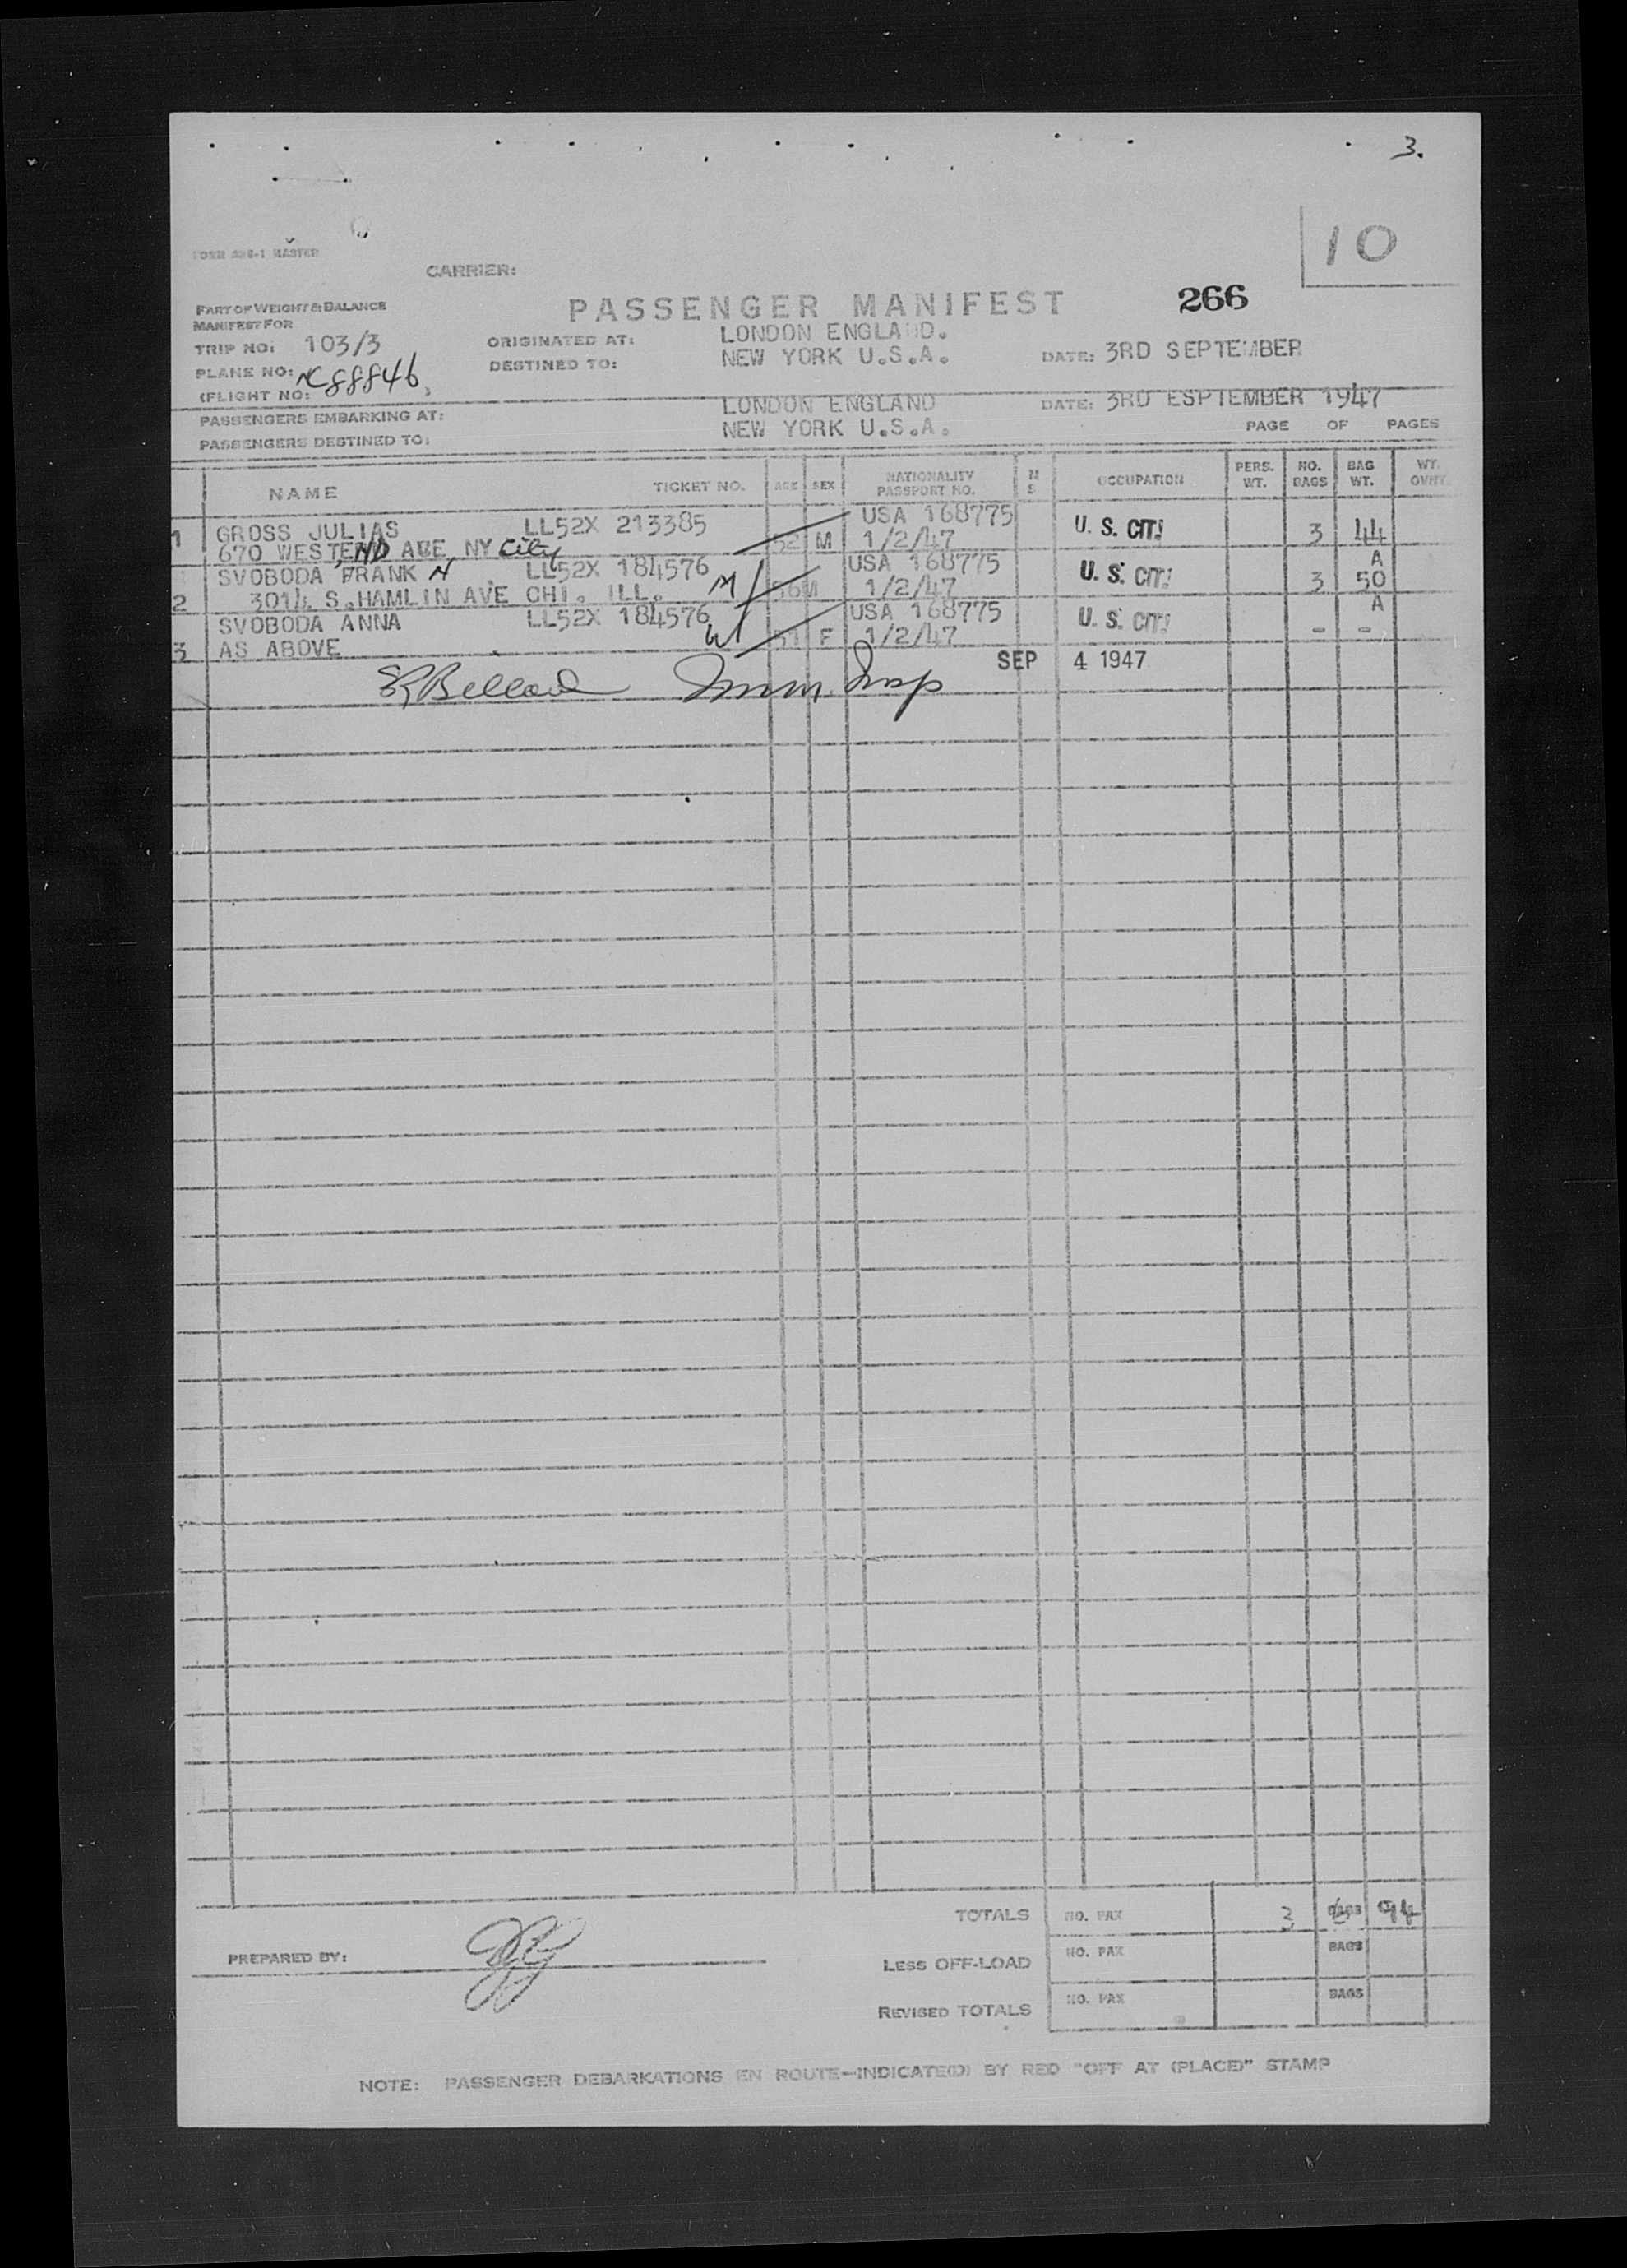 3.
10
FORM MASTER
CARRIER:
PART OF WEIGHT & BALANCE
MANIFEST FOR
PASSENGER MANIFEST
266
TRIP NO: 103/3
ORIGINATED AT: LONDON ENGLAND.
PLANE NO: NC88846
DESTINED TO: NEW YORK U.S.A.
DATE: 3RD SEPTEMBER
(FLIGHT NO:
PASSENGERS EMBARKING AT: LONDON ENGLAND
DATE: 3RD ESPTEMBER 1947
PASSENGERS DESTINED TO: NEW YORK U.S.A.
PAGE OF PAGES
NAME TICKET NO. AGE SEX NATIONALITY PASSPORT NO. OCCUPATION PERS. WT. NO. BAGS BAG WT. WT.
1 GROSS JULIAS LL52X 213385 52 M USA 168775 U. S. CIT. 3 44
670 WESTEND AVE NY City 1/2/47
SVOBODA FRANK N LL52X 184576 M 56 M USA 168775 U. S. CIT. 3 50 A
2 3014 S.HAMLIN AVE CHI. ILL. 1/2/47
SVOBODA ANNA LL52X 184576 W F USA 168775 U. S. CIT. - - A
3 AS ABOVE 1/2/47
SEP 4 1947
TOTALS NO. PAX 3 BAGS 94
PREPARED BY:
LESS OFF-LOAD NO. PAX BAGS
REVISED TOTALS NO. PAX BAGS
NOTE: PASSENGER DEBARKATIONS EN ROUTE—INDICATE(D) BY RED "OFF AT (PLACE)" STAMP